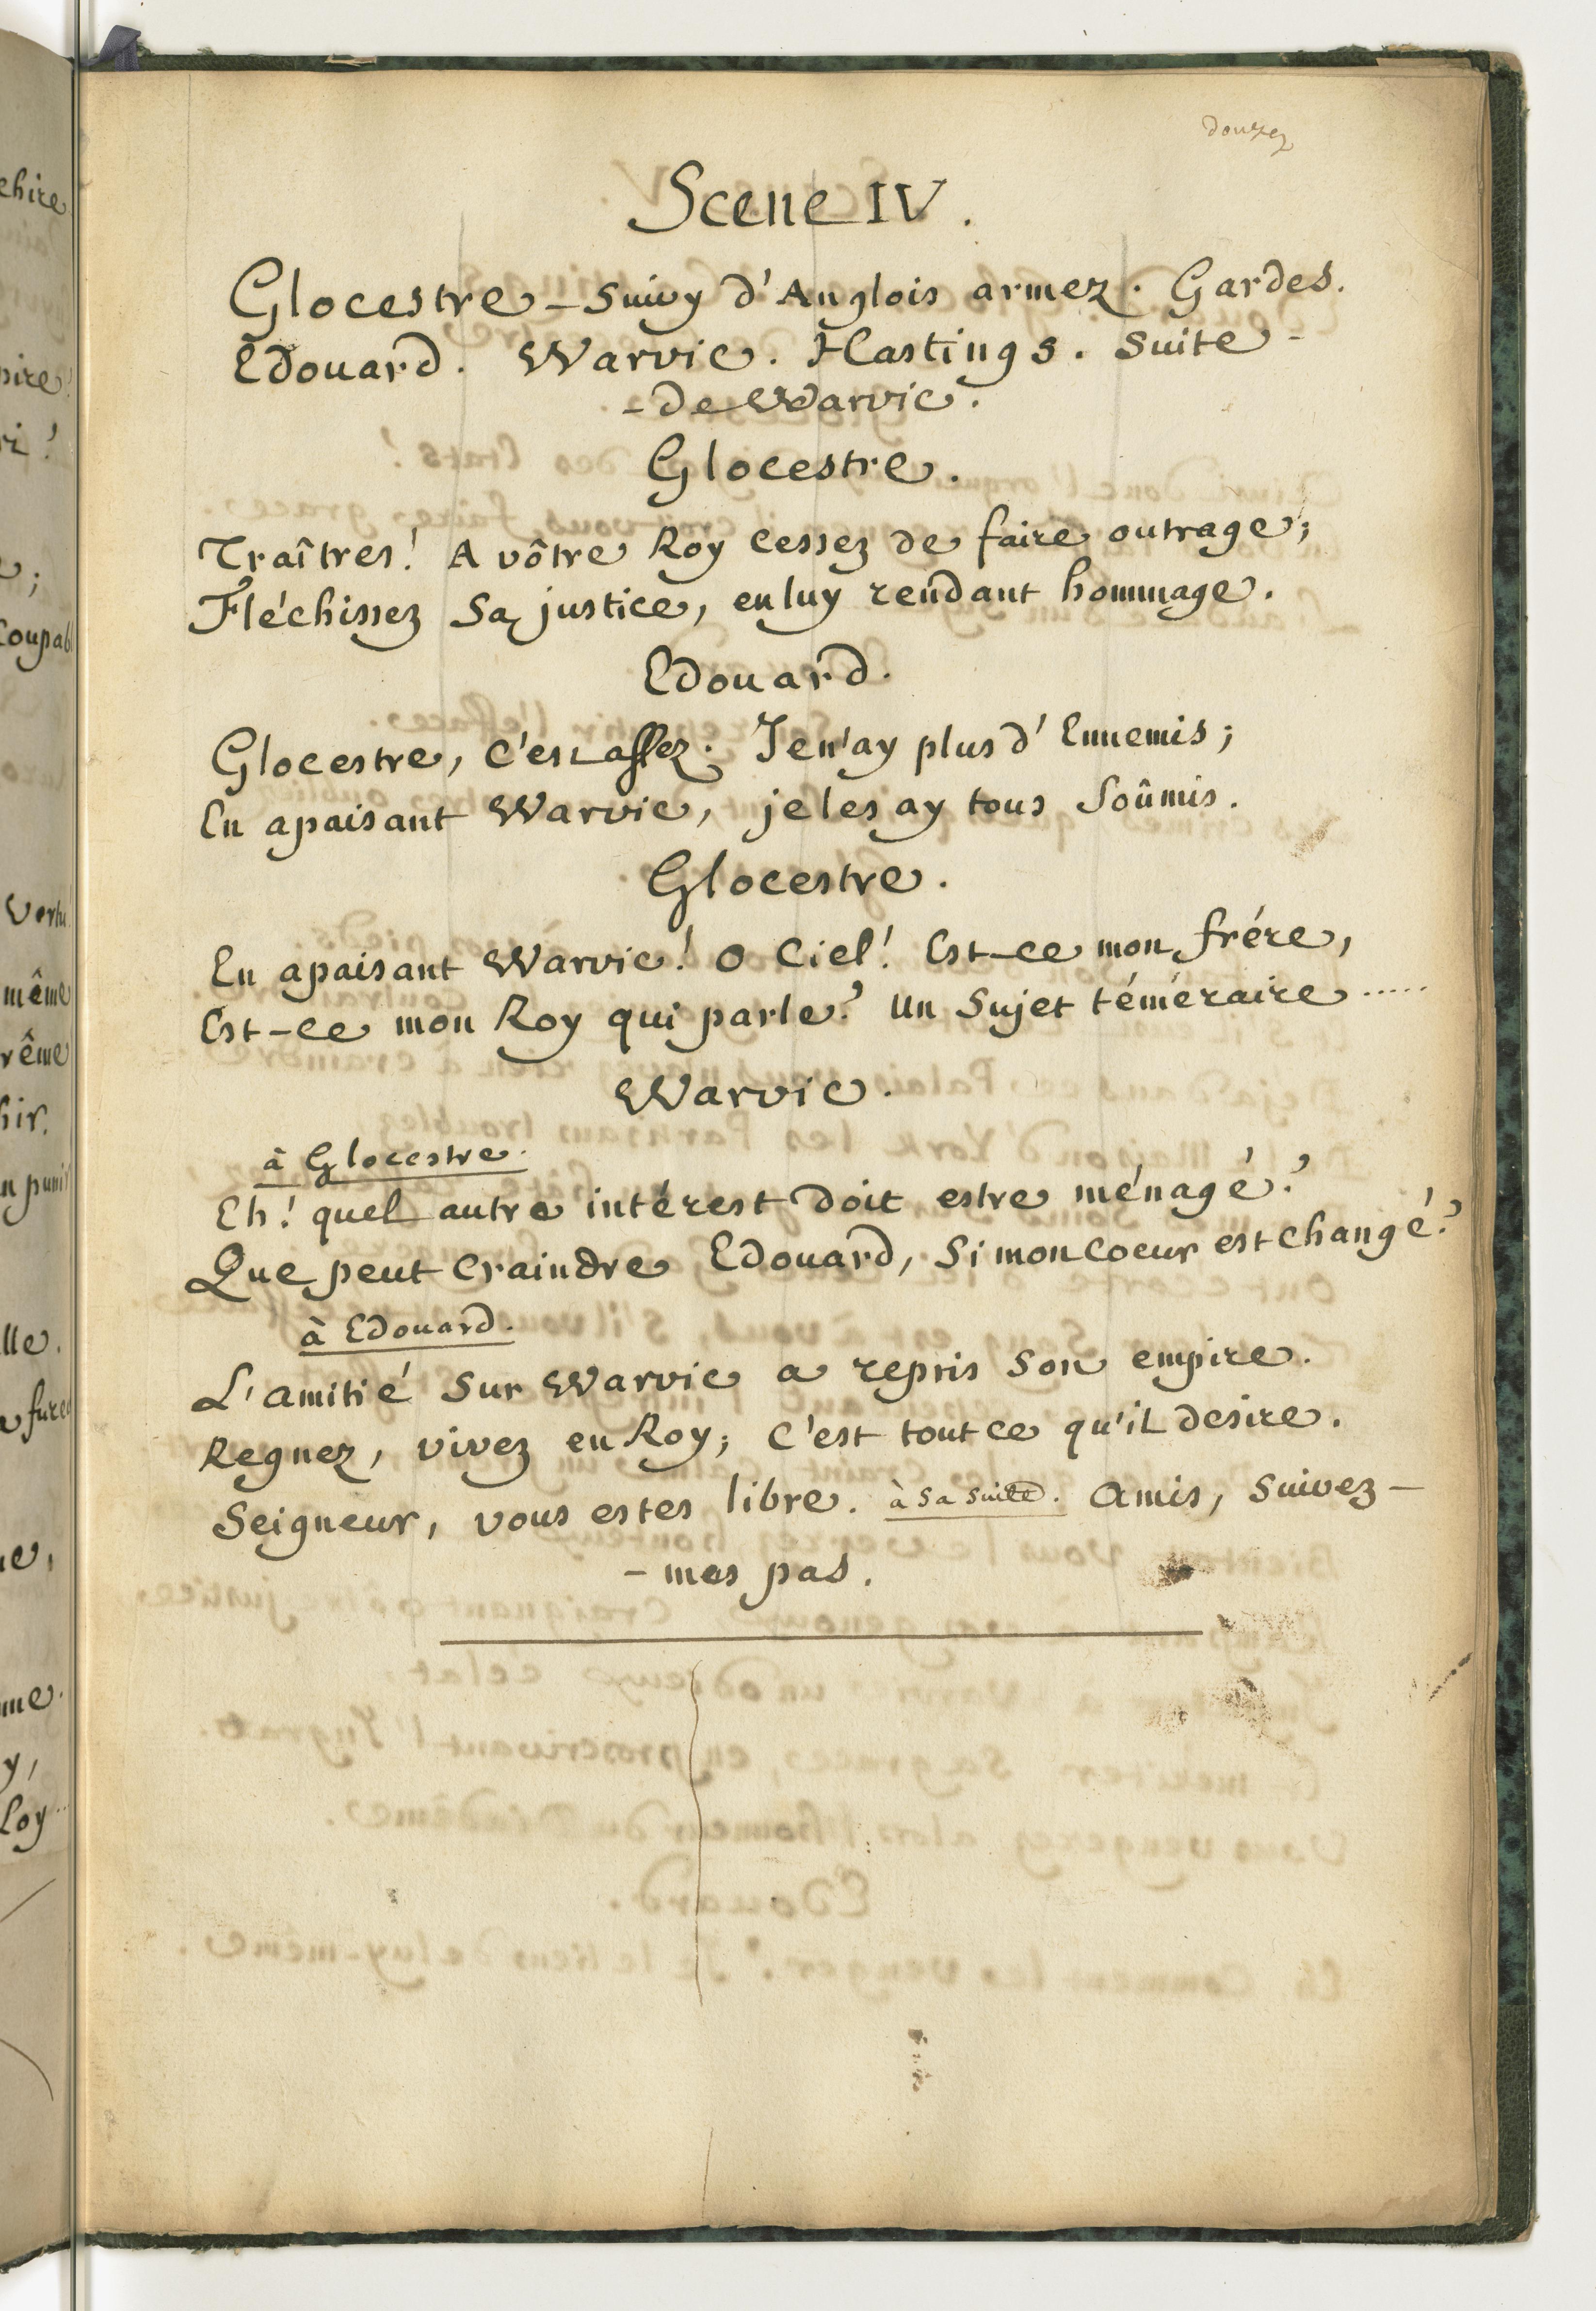 douze
Scene IV.
Glocestre - suivy d'Anglois armez. Gardes.
Edouard. Warvic. Hastings. Suite -
- de Warvic.
Glocestre.
Traîtres! A vôtre Roy cessez de faire outrage;
Fléchissez Sa justice, en luy rendant hommage.
Edouard.
Glocestre, c'est assez. Je n'ay plus d'Ennemis;
En apaisant Warvic, je les ay tous Soûmis.
Glocestre.
En apaisant Warvic! O Ciel! Est-ce mon frére,
Est-ce mon Roy qui parle? un Sujet téméraire .....
Warvic.
à Glocestre.
Eh! quel autre intérest doit estre ménagé?
Que peut craindre Edouard, Si mon coeur est changé?
à Edouard.
L'amitié Sur Warvic a repris Son empire.
Regnez, vivez en Roy; C'est tout ce qu'il desire.
Seigneur, vous estes libre. à Sa Suite. Amis, Suivez -
- mes pas.